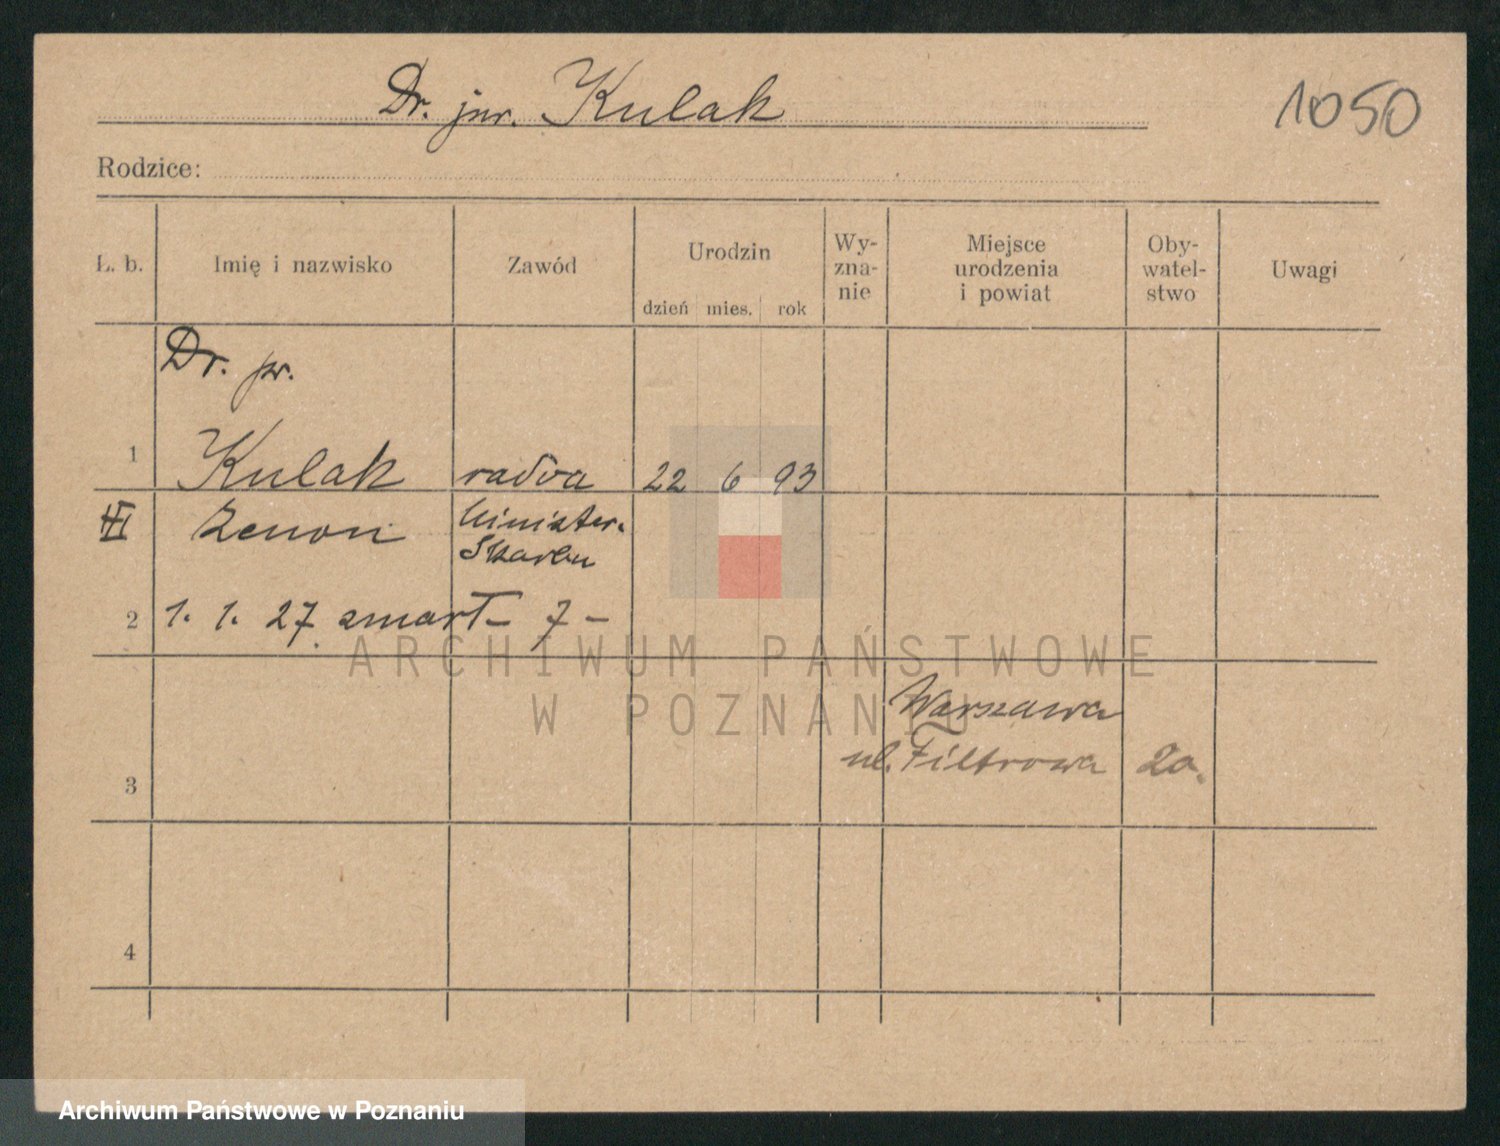 Dr. jur. Kulak
1050
Rodzice:
L. b.
Imię i nazwisko
Zawód
Urodzin
dzień mies. rok
Wy-
zna-
nie
Miejsce
urodzenia
i powiat
Oby-
watel-
stwo
Uwagi
Dr. pr.
1 Kulak radca 22 6 93
Zenon Minister.
Skarbu
2 1. 1. 27 zmarł – 7 –
Warszawa
3 ul. Filtrowa 20.
4
ARCHIWUM PAŃSTWOWE
W POZNANIU
Archiwum Państwowe w Poznaniu